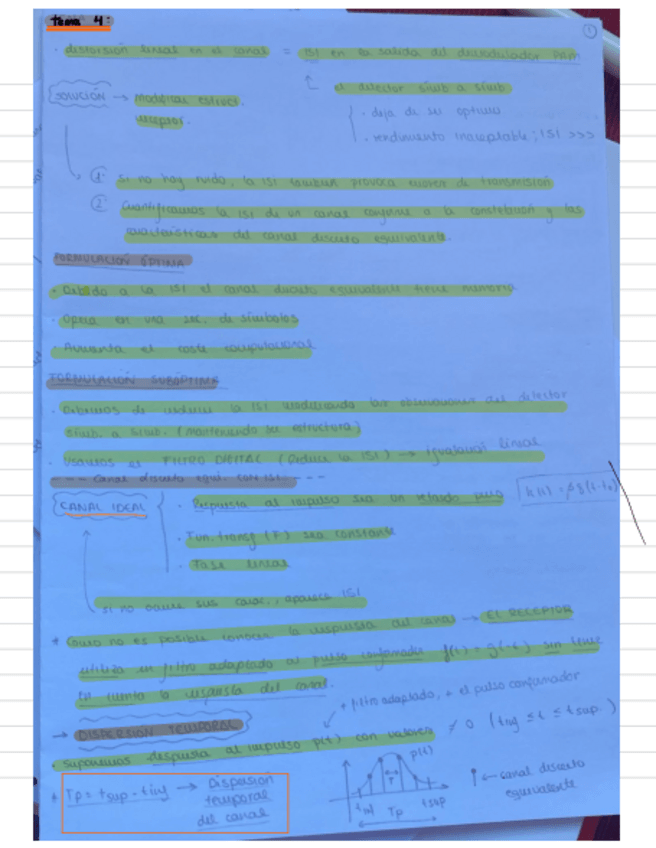 tema 4:
①
· distorsión lineal en el canal = ISI en la salida del demodulador PAM
↳ el detector símb a símb
SOLUCIÓN → modificar estruct. receptor.
· deja de ser óptimo
· rendimiento inaceptable; ISI >>>
① Si no hay ruido, la ISI también provoca errores de transmisión
② Cuantificamos la ISI de un canal conforme a la constelación y las
características del canal discreto equivalente.
FORMULACIÓN ÓPTIMA
· Debido a la ISI el canal discreto equivalente tiene memoria
· Opera en una sec. de símbolos
· Aumenta el coste computacional
FORMULACIÓN SUBÓPTIMA
· Debemos de reducir la ISI modificando las observaciones del detector
símb. a símb. (manteniendo su estructura)
· Usamos el FILTRO DIGITAL (Reduce la ISI) → igualación lineal
--- Canal discreto equi. con ISI. ---
CANAL IDEAL
· Respuesta al impulso sea un retardo puro
· Fun. transf (F) sea constante
· Fase lineal
si no ocurre sus carac., aparece ISI
* Como no es posible conocer la respuesta del canal → EL RECEPTOR
utiliza un filtro adaptado al pulso conformador f(t) = g(-t) sin tener
en cuenta la respuesta del canal.
+ filtro adaptado, + el pulso conformador
→ DISPERSIÓN TEMPORAL
· Suponemos respuesta al impulso p(t) con valores ≠ 0 (tinf ≤ t ≤ tsup)
* Tp = tsup - tinf → Dispersión
temporal
del canal
p(t)
T
tinf Tp tsup
← canal discreto
equivalente